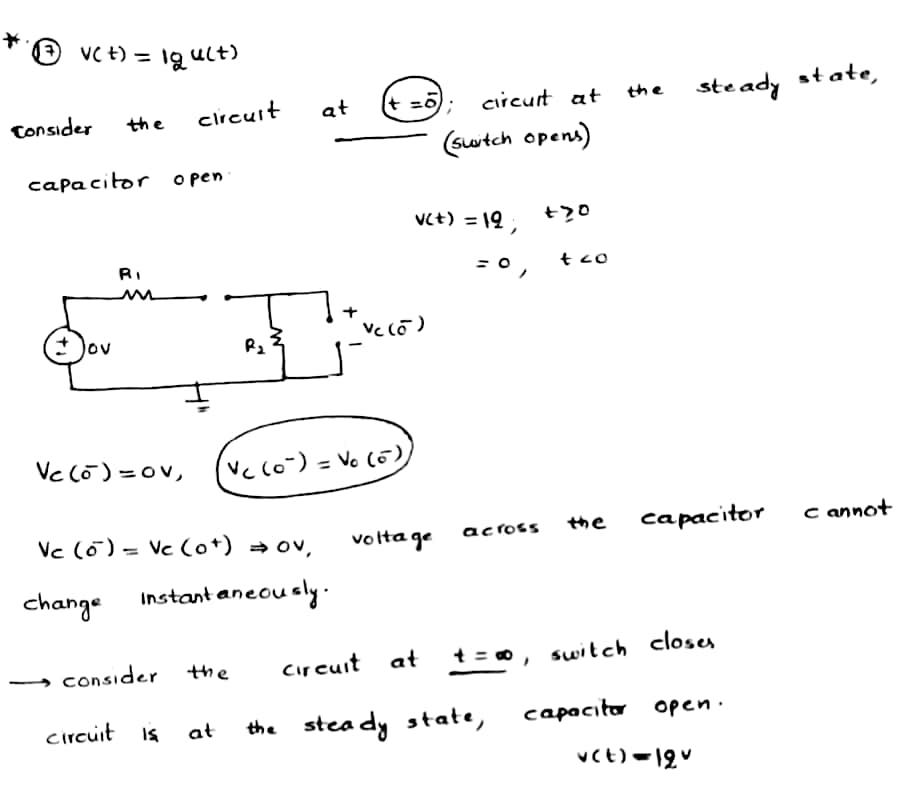 * ⑰ v(t) = 12 u(t)
Consider the circuit at t = 0⁻; circuit at the steady state,
(switch opens)
capacitor open.
v(t) = 12, t ≥ 0
= 0, t < 0
R₁
+
Vc(0⁻)
−
+
−
0V
R₂
Vc(0⁻) = 0V, Vc(0⁻) = Vo(0⁻)
Vc(0⁻) = Vc(0⁺) ⇒ 0V, voltage across the capacitor cannot
change instantaneously.
→ consider the circuit at t = ∞, switch closes
circuit is at the steady state, capacitor open.
v(t) = 12V